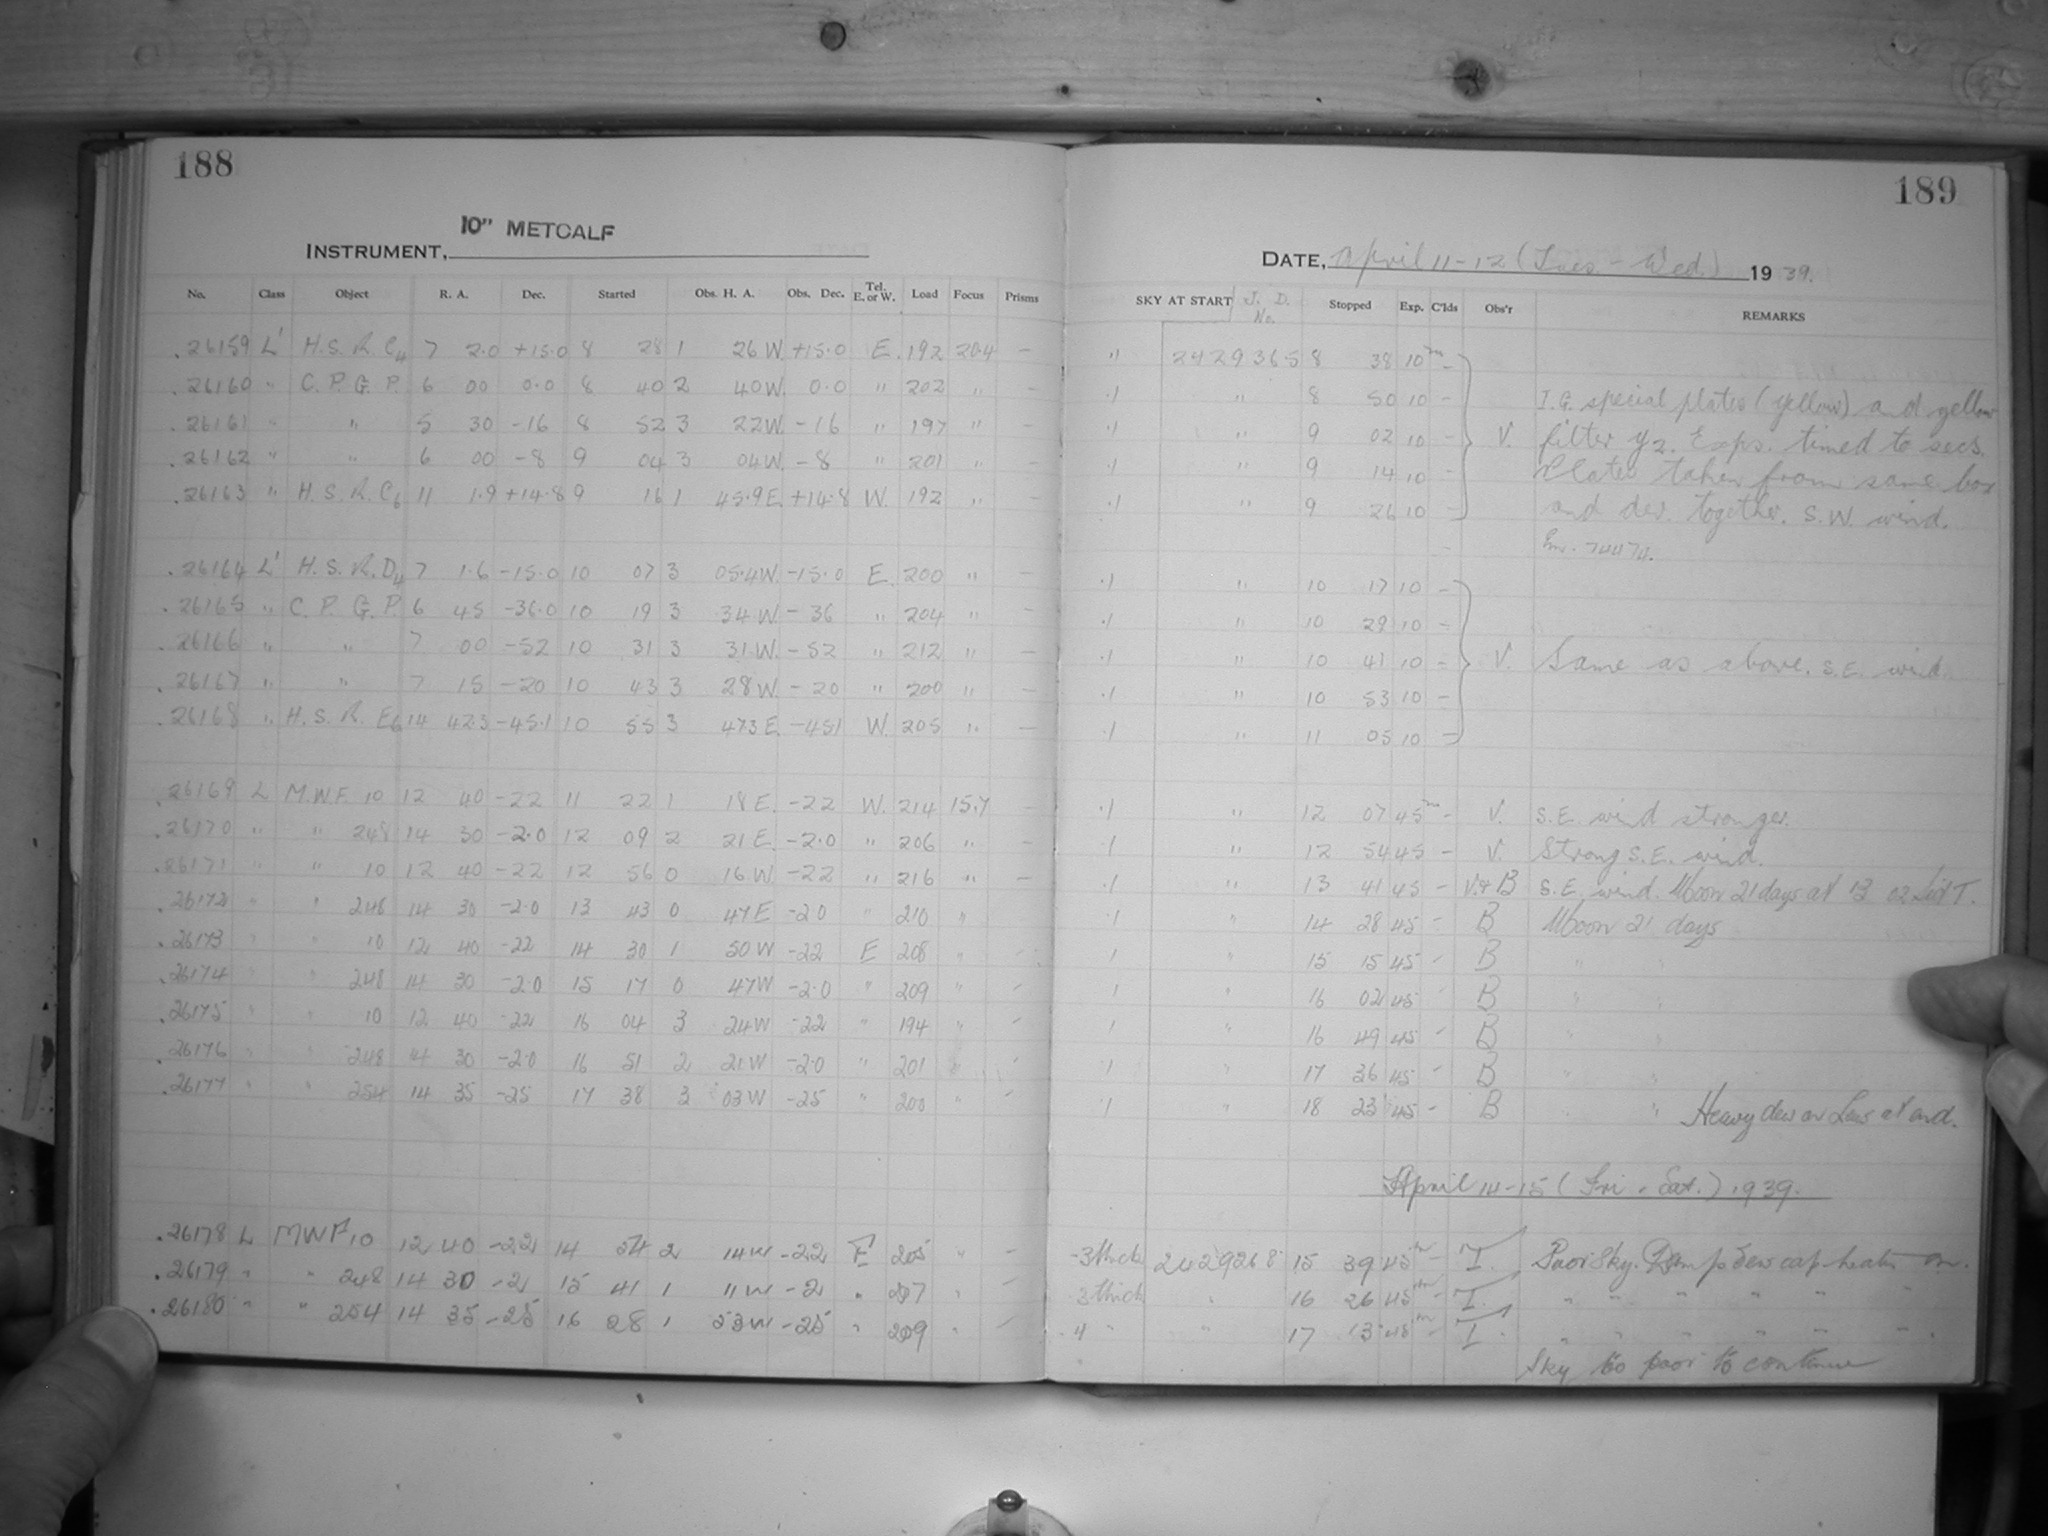 188
10" METCALF
INSTRUMENT,
No. Class Object R. A. Dec. Started Obs. H. A. Obs. Dec. Tel. E. or W. Load Focus Prisms
.26159 L' H.S.R.C4 7 2.0 +15.0 8 28 1 26 W. +15.0 E. 192 20.4 –
.26160 " C.P.G.P. 6 00 0.0 8 40 2 40 W. 0.0 " 202 " –
.26161 " " 5 30 -16 8 52 3 22 W. -16 " 197 " –
.26162 " " 6 00 -8 9 04 3 04 W. -8 " 201 " –
.26163 " H.S.R.C6 11 1.9 +14.8 9 16 1 45.9 E. +14.8 W. 192 " –
.26164 L' H.S.R.D4 7 1.6 -15.0 10 07 3 05.4 W. -15.0 E. 200 " –
.26165 " C.P.G.P. 6 45 -36.0 10 19 3 34 W. -36 " 204 " –
.26166 " " 7 00 -52 10 31 3 31 W. -52 " 212 " –
.26167 " " 7 15 -20 10 43 3 28 W. -20 " 200 " –
.26168 " H.S.R. E6 14 42.3 -45.1 10 55 3 47.3 E. -45.1 W. 205 " –
.26169 L M.W.F. 10 12 40 -22 11 22 1 18 E. -22 W. 214 15.7 –
.26170 " " 248 14 30 -2.0 12 09 2 21 E. -2.0 " 206 " –
.26171 " " 10 12 40 -22 12 56 0 16 W. -22 " 216 " –
.26172 " " 248 14 30 -2.0 13 43 0 47 E -2.0 " 210 "
.26173 " " 10 12 40 -22 14 30 1 50 W -22 E 208 " –
.26174 " " 248 14 30 -2.0 15 17 0 47 W -2.0 " 209 " –
.26175 " " 10 12 40 -22 16 04 3 24 W -22 " 194 " –
.26176 " " 248 14 30 -2.0 16 51 2 21 W -2.0 " 201 " –
.26177 " " 254 14 35 -25 17 38 3 03 W -25 " 200 " –
.26178 L MWF 10 12 40 -22 14 54 2 14 W -22 E 205 " –
.26179 " " 248 14 30 -2 15 41 1 11 W -2 " 207 " –
.26180 " " 254 14 35 -25 16 28 1 53 W -25 " 209 " –
189
DATE, April 11-12 (Tues - Wed.) 1939.
SKY AT START J. D. No. Stopped Exp. C'lds Obs'r REMARKS
" 2429365 8 38 10m –
.1 " 8 50 10 – I.G. special plates (yellow) and yellow
.1 " 9 02 10 – V. filter Y2. Exps. timed to secs.
.1 " 9 14 10 – Plates taken from same box
.1 " 9 26 10 – and dev. together. S.W. wind.
Em. 74474.
.1 " 10 17 10 –
.1 " 10 29 10 –
.1 " 10 41 10 – V. Same as above. S.E. wind.
.1 " 10 53 10 –
.1 " 11 05 10 –
.1 " 12 07 45m – V. S.E. wind stronger.
.1 " 12 54 45 – V. Strong S.E. wind.
.1 " 13 41 45 – V.+B S.E. wind. Moon 21 days at 13 02 T.
.1 " 14 28 45 – B Moon 21 days
1 " 15 15 45 – B " "
1 " 16 02 45 – B " "
1 " 16 49 45 – B " "
1 " 17 36 45 – B " "
1 " 18 23 45 – B " " Heavy dew on Lens at end.
April 14-15 (Fri - Sat.) 1939.
-3 thick 2429268 15 39 45m – I. Poor Sky. Damp. Dew cap heater on.
-3 thick " 16 26 45m – I. " " " " " "
.4 " " 17 13 45m – I. " " " " " "
Sky too poor to continue